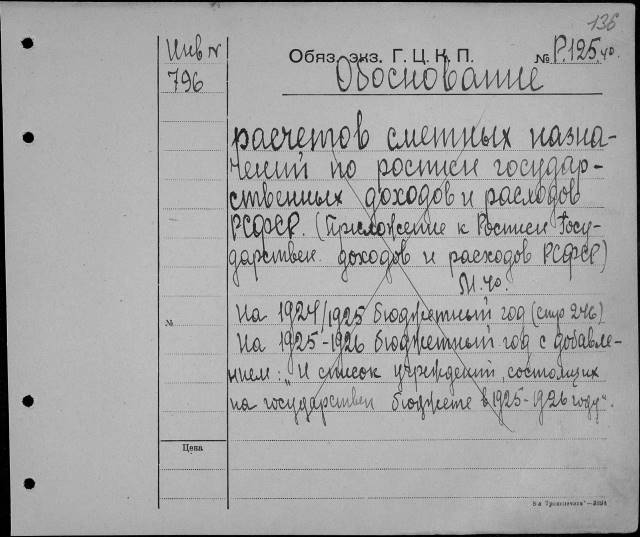 136
Инв N
796
Обяз. экз. Г. Ц. К. П.
№ Р.125.40.
Обоснование
расчетов сметных назна-
чений по росписи государ-
ственных доходов и расходов
РСФСР. (Приложение к Росписи Госу-
дарствен. доходов и расходов РСФСР)
М. 40.
на 1924/1925 бюджетный год (стр 246)
№
на 1925-1926 бюджетный год с добавле-
нием: „И список учреждений, состоящих
на государствен бюджете в 1925-1926 году".
Цена